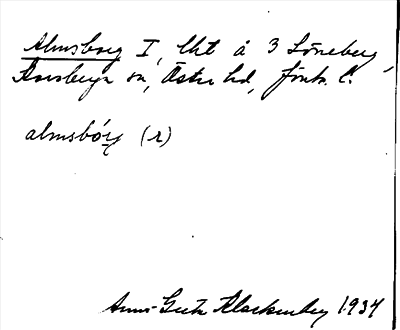 Almsborg I, lht å 3 Löneberg,
Karsberga sn, Östra hd, Jönk. l.
almsbórj (r)
Anna-Greta Klackenberg 1934